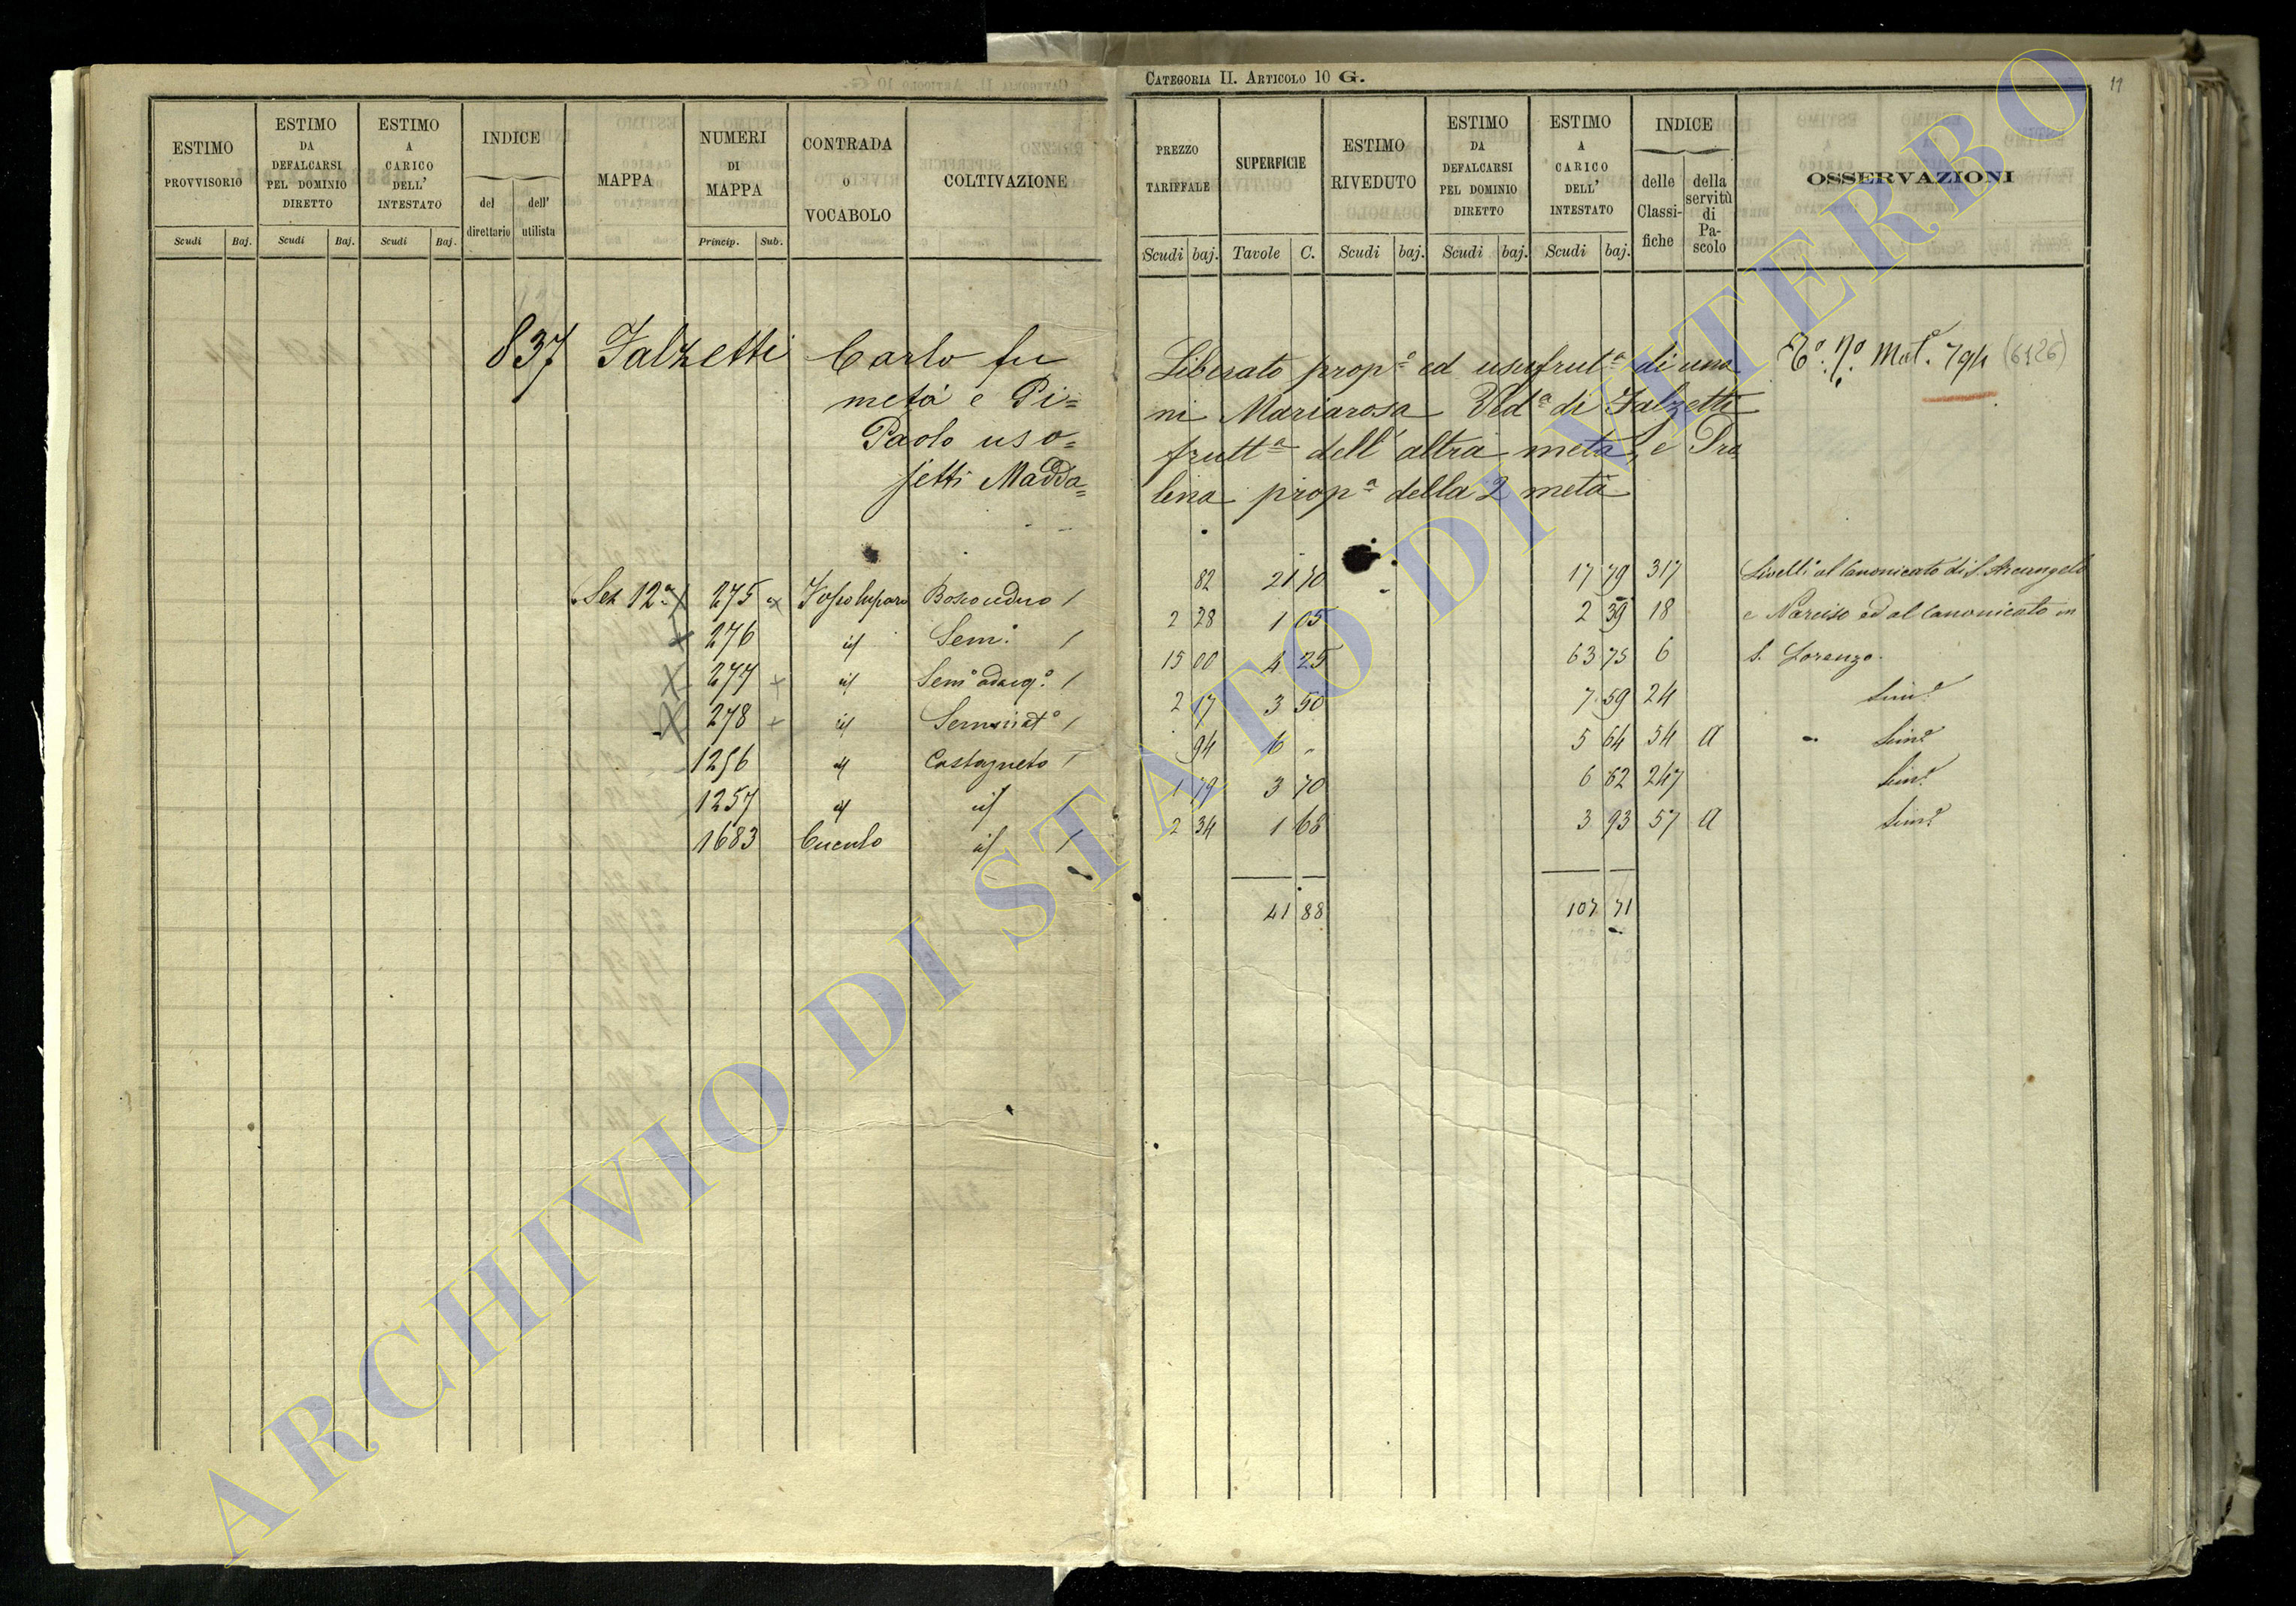 CATEGORIA II. ARTICOLO 10 G.
11
ESTIMO PROVVISORIO
ESTIMO DA DEFALCARSI PEL DOMINIO DIRETTO
ESTIMO A CARICO DELL' INTESTATO
INDICE
del direttario
dell' utilista
MAPPA
NUMERI DI MAPPA
CONTRADA O VOCABOLO
COLTIVAZIONE
Scudi Baj. Scudi Baj. Scudi Baj. Princip. Sub.
PREZZO TARIFFALE
SUPERFICIE
ESTIMO RIVEDUTO
ESTIMO DA DEFALCARSI PEL DOMINIO DIRETTO
ESTIMO A CARICO DELL' INTESTATO
INDICE
delle Classifiche
della servitù di Pascolo
OSSERVAZIONI
Scudi baj. Tavole C. Scudi baj. Scudi baj. Scudi baj.
837 Falzetti Carlo fu Liberato propº ed usufrutº di una Tº. Nº. Matº. 794 (6126)
metà e Pi= ni Mariarosa Vedª di Falzetti
Paolo uso= fruttª dell' altra metà, e Pro
jetti Madda= lena propª della 2 metà
Sez 12ª 275 Fosso luparo Bosco ceduo / 82 21 70 17 79 317 Livellº al Canonicato di S. Arcangelo
276 id Semº / 2 28 1 05 2 39 18 e Narciso ed al Canonicato in
277 id Semº adacqº / 15 00 4 25 63 75 6 S. Lorenzo.
278 id Seminatº / 2 17 3 50 7 59 24 Simº
1256 id Castagneto / 94 6 " 5 64 54 A Simº
1257 id id / 1 79 3 70 6 62 247 Simº
1683 Cuculo id / 2 34 1 68 3 93 57 A Simº
41 88 107 71
ARCHIVIO DI STATO DI VITERBO